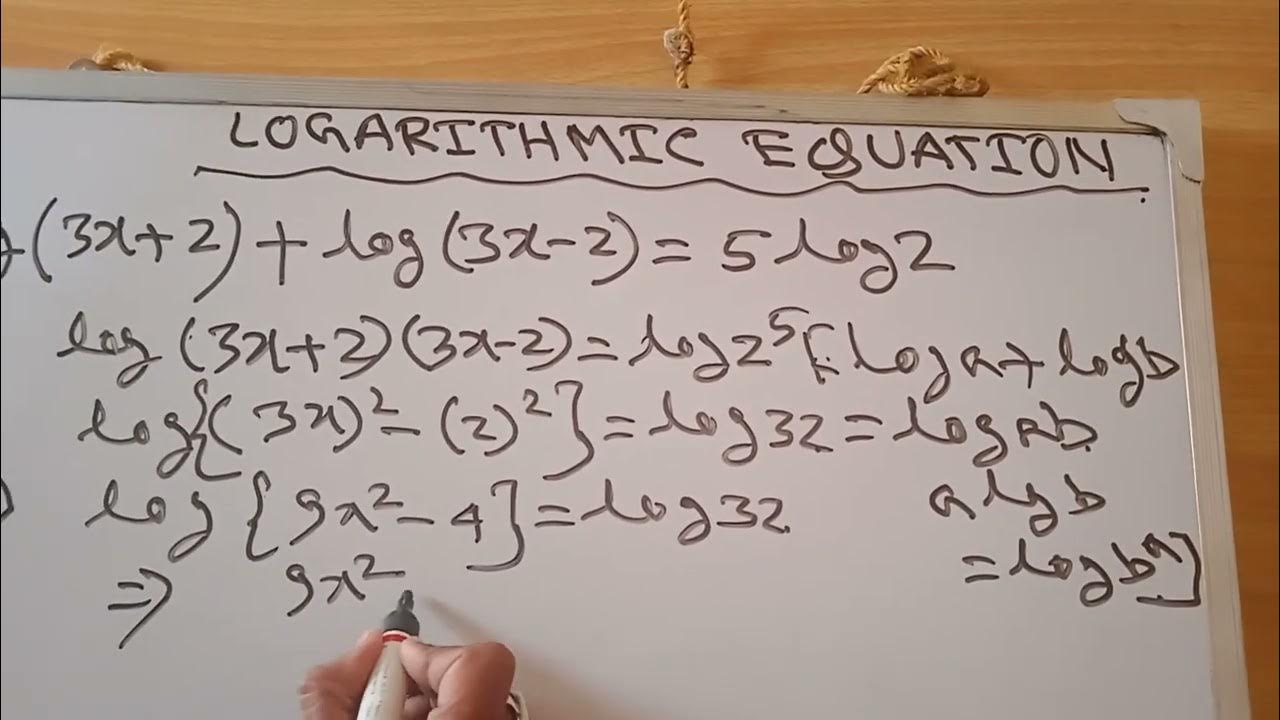 LOGARITHMIC EQUATION
(3x+2) + log(3x-2) = 5 log2
log (3x+2)(3x-2) = log2⁵ [∵ loga + logb
log{(3x)² - (2)²} = log32 = logab
log {9x² - 4} = log32 a logb
⇒ 9x² = logbᵃ]